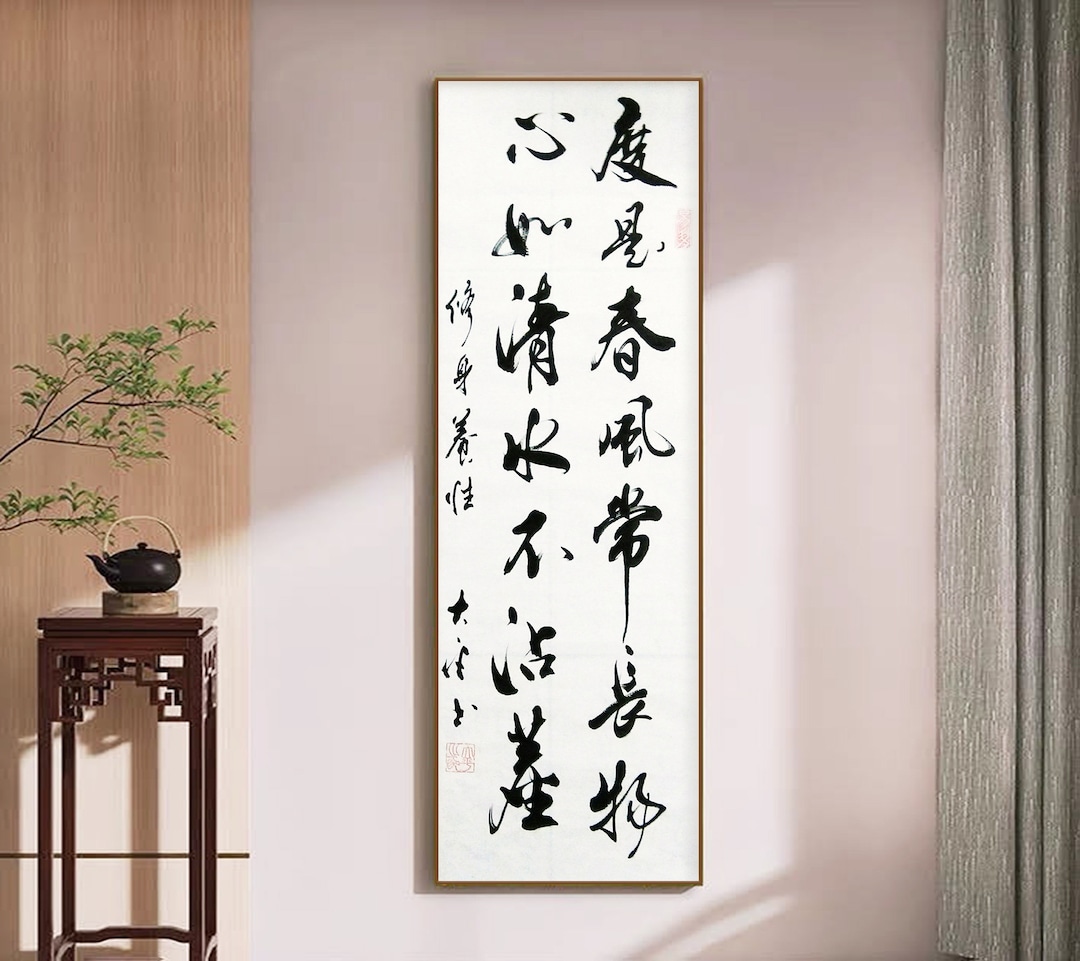 度是春風常長物
心如清水不沾塵
修身養性
大书